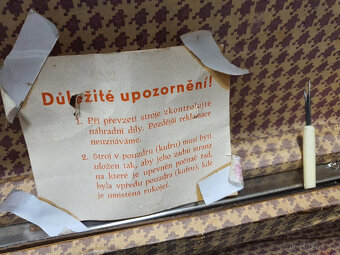 Důležité upozornění!
1. Při převzetí stroje zkontrolujte
náhradní díly. Pozdější reklamace
neuznáváme.
2. Stroj v pouzdru (kufru) musí býti
uložen tak, aby jeho zadní strana
na které je upevněn počítač řad,
byla vpředu pouzdra (kufru), kde
je umístěna rukojeť.